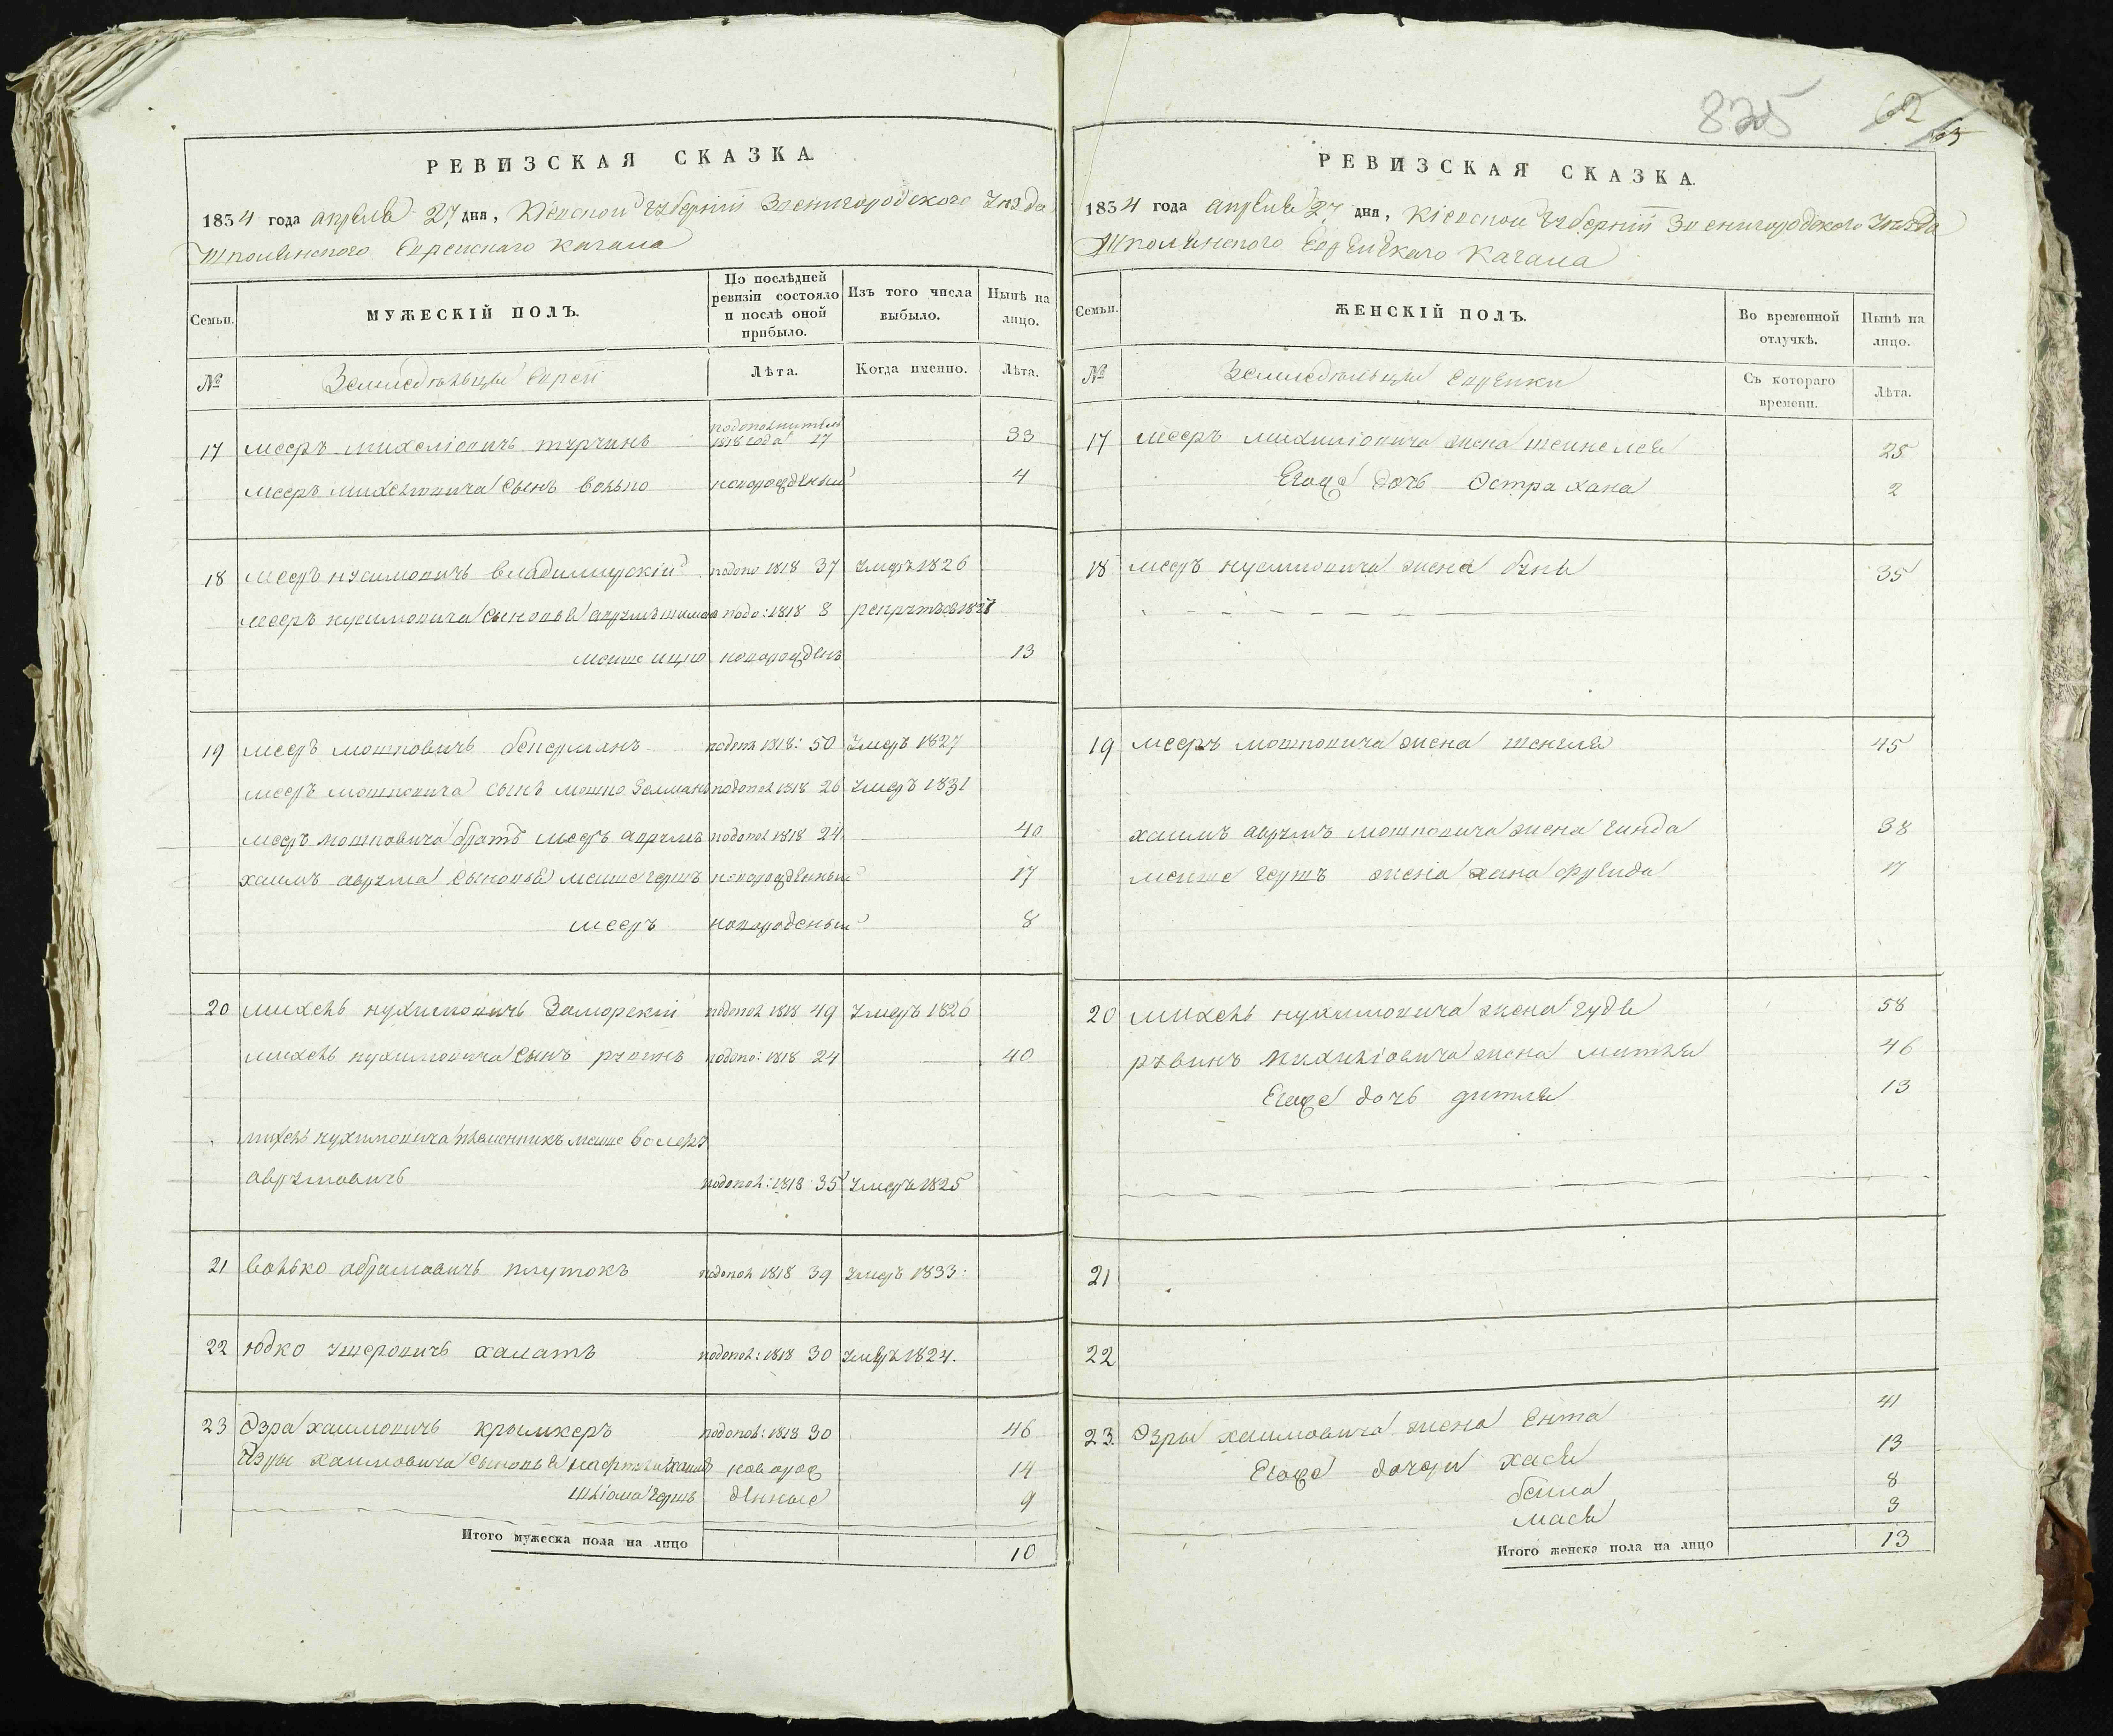 825 62
63
РЕВИЗСКАЯ СКАЗКА.
1834 года апреля 27 дня, Кіевской губерніи Звенигородского уезда
Шполянского Еврейскаго кагала
Семьи. МУЖЕСКІЙ ПОЛЪ. По послѣдней ревизіи состояло и послѣ оной прибыло. Изъ того числа выбыло. Нынѣ на лицо.
№ Земледельцы Евреи Лѣта. Когда именно. Лѣта.
17 мееръ михеліовичъ турчинъ 1818 года 17 33
мееръ михеліовича сынъ волько новорожденый 4
18 мееръ нусимовичъ владимирскій подопо 1818 37 умеръ 1826
мееръ нусимовича сыновья аврумъ подо: 1818 8
моше ицко новорожденъ 13
19 мееръ мошковичъ беперманъ подопол 1818: 50 умеръ 1827
мееръ мошковича сынъ мошко Залманъ подопол 1818 26 умеръ 1831
мееръ мошковича братъ мееръ аврумъ подопол 1818 24 40
хаимъ аврума сыновья моше гершъ новорожденный 17
мееръ новороденый 8
20 михель нухимовичъ Заморскій подопол 1818 49 умеръ 1826
михель нухимовича сынъ рувинъ подопо: 1818 24 40
михель нухимовича племенникъ моше волеръ
аврумовичъ подопол: 1818 35 умеръ 1825
21 волько абрамовичъ плутокъ подопол 1818 39 умеръ 1833:
22 юдко ушеровичъ халатъ подопол: 1818 30 умеръ 1824.
23 Эзра хаимовичъ крымкеръ подопол: 1818 30 46
Эзры хаимовича сыновья нафтула хаимъ новорож 14
шліома гершъ денные 9
Итого мужеска пола на лицо 10
РЕВИЗСКАЯ СКАЗКА.
1834 года апреля 27 дня, Кіевской губерніи Звенигородского уезда
Шполянского Еврейскаго Кагала
Семьи. ЖЕНСКІЙ ПОЛЪ. Во временной отлучкѣ. Нынѣ на лицо.
№ Земледельцы Еврейки Съ котораго времени. Лѣта.
17 мееръ михиліовича жена шейне лея 25
Егоже дочь Эстра хана 2
18 мееръ нусимовича жена буня 35
19 мееръ мошковича жена шендля 45
хаимъ аврумъ мошковича жена гинда 38
моише гершъ жена хана фрейда 17
20 михель нухимовича жена гудя 58
рувинъ михиліовича жена митля 46
Егоже дочь гитля 13
21
22
23. Эзры хаимовича жена Ента 41
Егоже дочери хася 13
бейла 8
мася 3
Итого женска пола на лицо 13